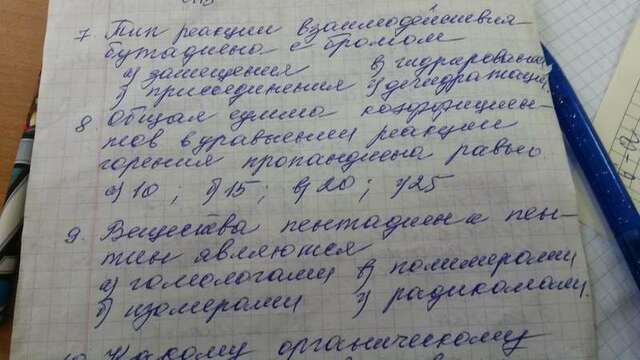 7. Тип реакции взаимодействия
бутадиена с бромом
а) замещения в) гидрирования
б) присоединения г) дегидратации
8 Общая сумма коэффициен-
тов в уравнении реакции
горения пропандиена равна
а) 10 ; б) 15 ; в) 20 ; г) 25
9. Вещества пентадиен и пен-
тин являются
а) гомологами в) полимерами
б) изомерами г) радикалами.
10 Какому органическому